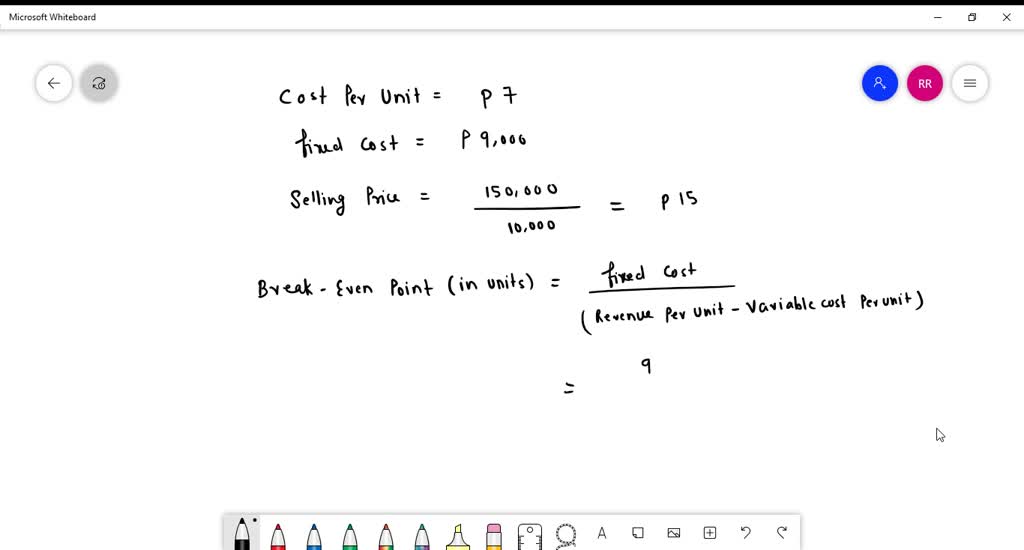 Microsoft Whiteboard
RR
Cost Per Unit = P 7
fixed cost = P 9,000
Selling Price = 150,000 / 10,000 = P 15
Break-Even Point (in units) = fixed cost / (Revenue Per Unit - Variable cost Per unit)
= 9
A